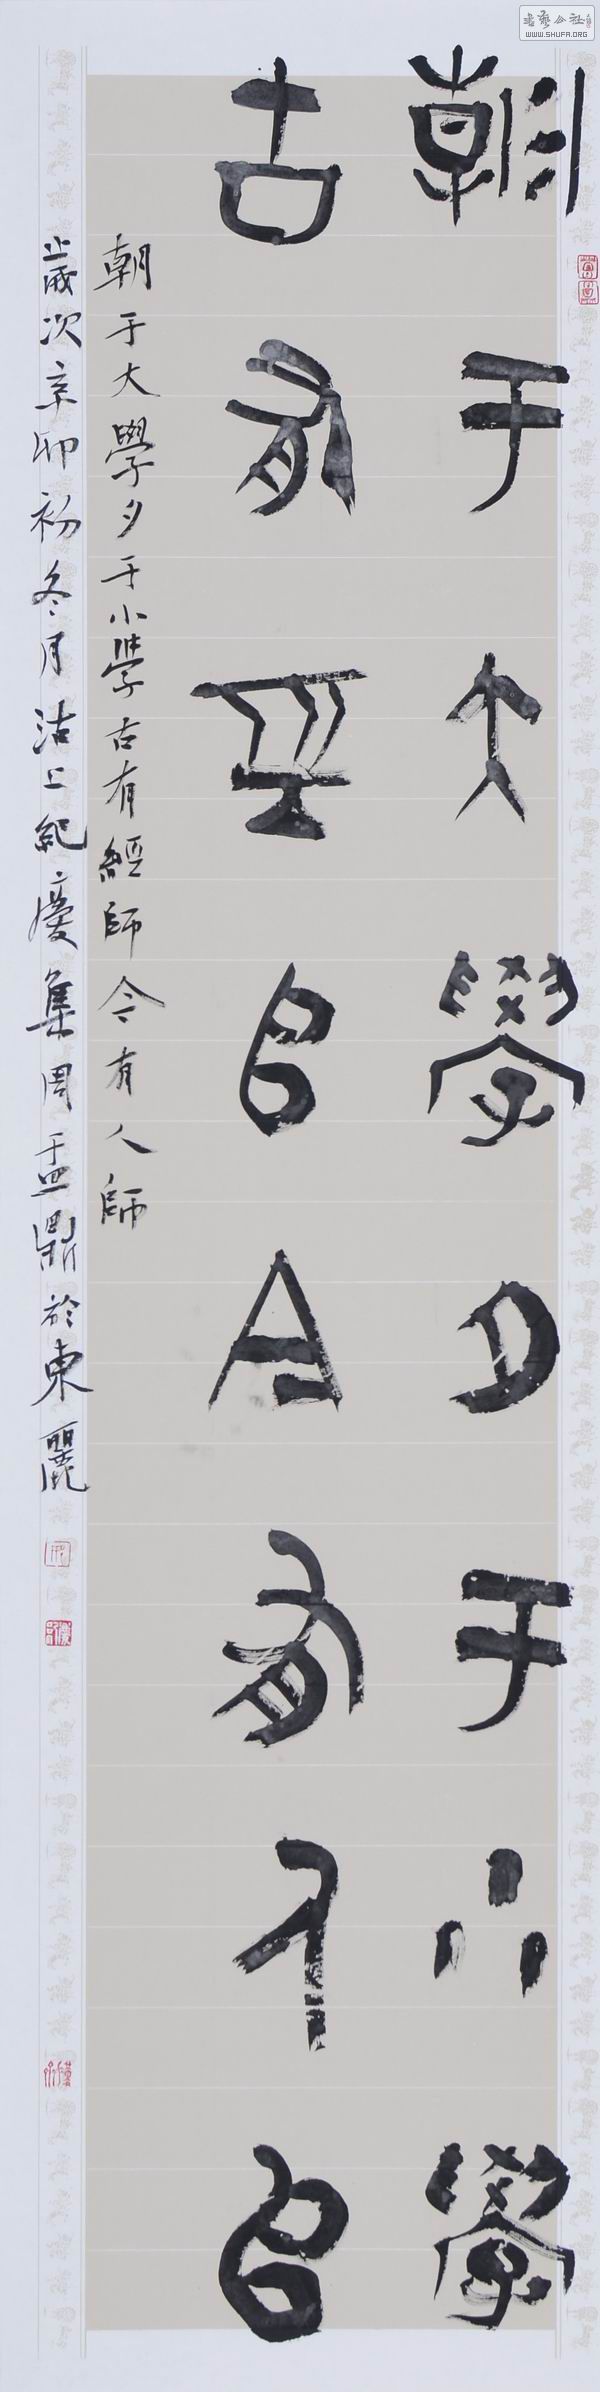 朝于大學夕于小學
古有巠𠂤今有人𠂤
朝于大學夕于小學古有經師今有人師
歲次辛卯初冬月沽上紀慶集周盂鼎於東麗
書藝公社
WWW.SHUFA.ORG